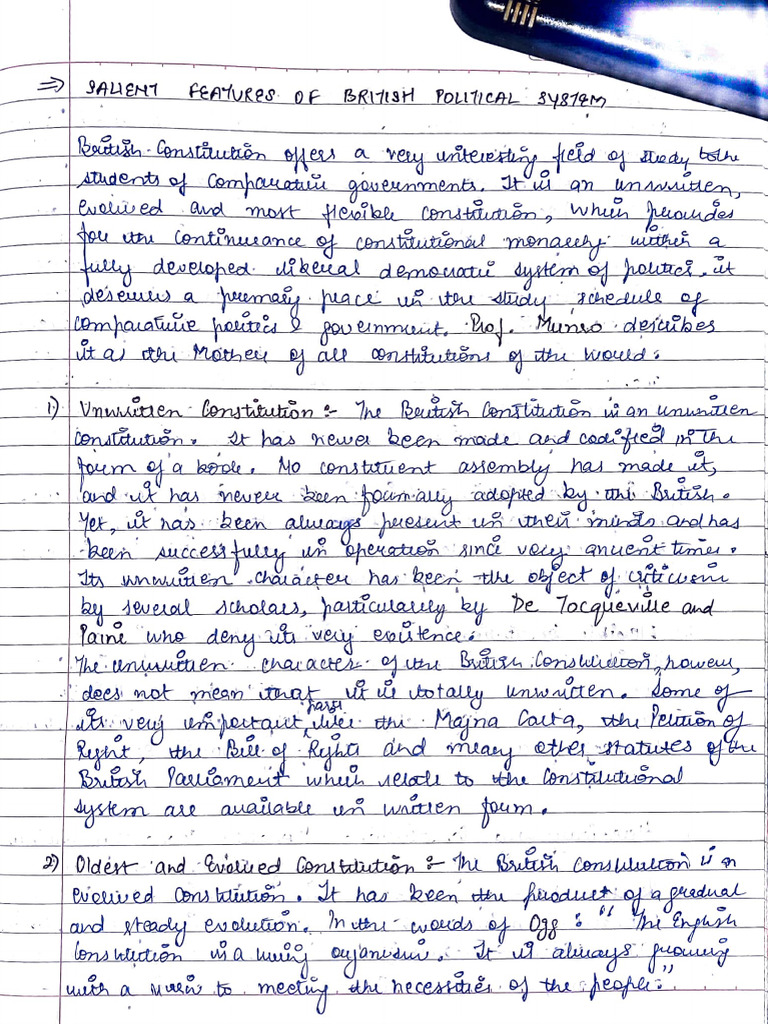 ⇒ SALIENT FEATURES OF BRITISH POLITICAL SYSTEM
British Constitution offers a very interesting field of study to the
students of comparative governments. It is an unwritten,
evolved and most flexible constitution, which provides
for the continuance of constitutional monarchy within a
fully developed liberal democratic system of politics. it
deserves a primary place in the study schedule of
comparative politics & government. Prof. Munro describes
it as the Mother of all constitutions of the world.
1) Unwritten Constitution :- The British Constitution is an unwritten
constitution. It has never been made and codified in the
form of a book. No constituent assembly has made it,
and it has never been formally adopted by the British.
Yet, it has been always present in their minds and has
been successfully in operation since very ancient times.
Its unwritten character has been the object of criticism
by several scholars, particularly by De Tocqueville and
Paine who deny its very existence.
The unwritten character of the British Constitution, however,
does not mean that it is totally unwritten. Some of
its very important parts like the Magna Carta, the Petition of
Right, the Bill of Rights and many other statutes of the
British Parliament which relate to the Constitutional
system are available in written form.
2) Oldest and Evolved Constitution :- The British Constitution is an
evolved Constitution. It has been the product of a gradual
and steady evolution. In the words of Ogg : " The English
Constitution is a living organism. It is always growing
with a view to meeting the necessities of the people."